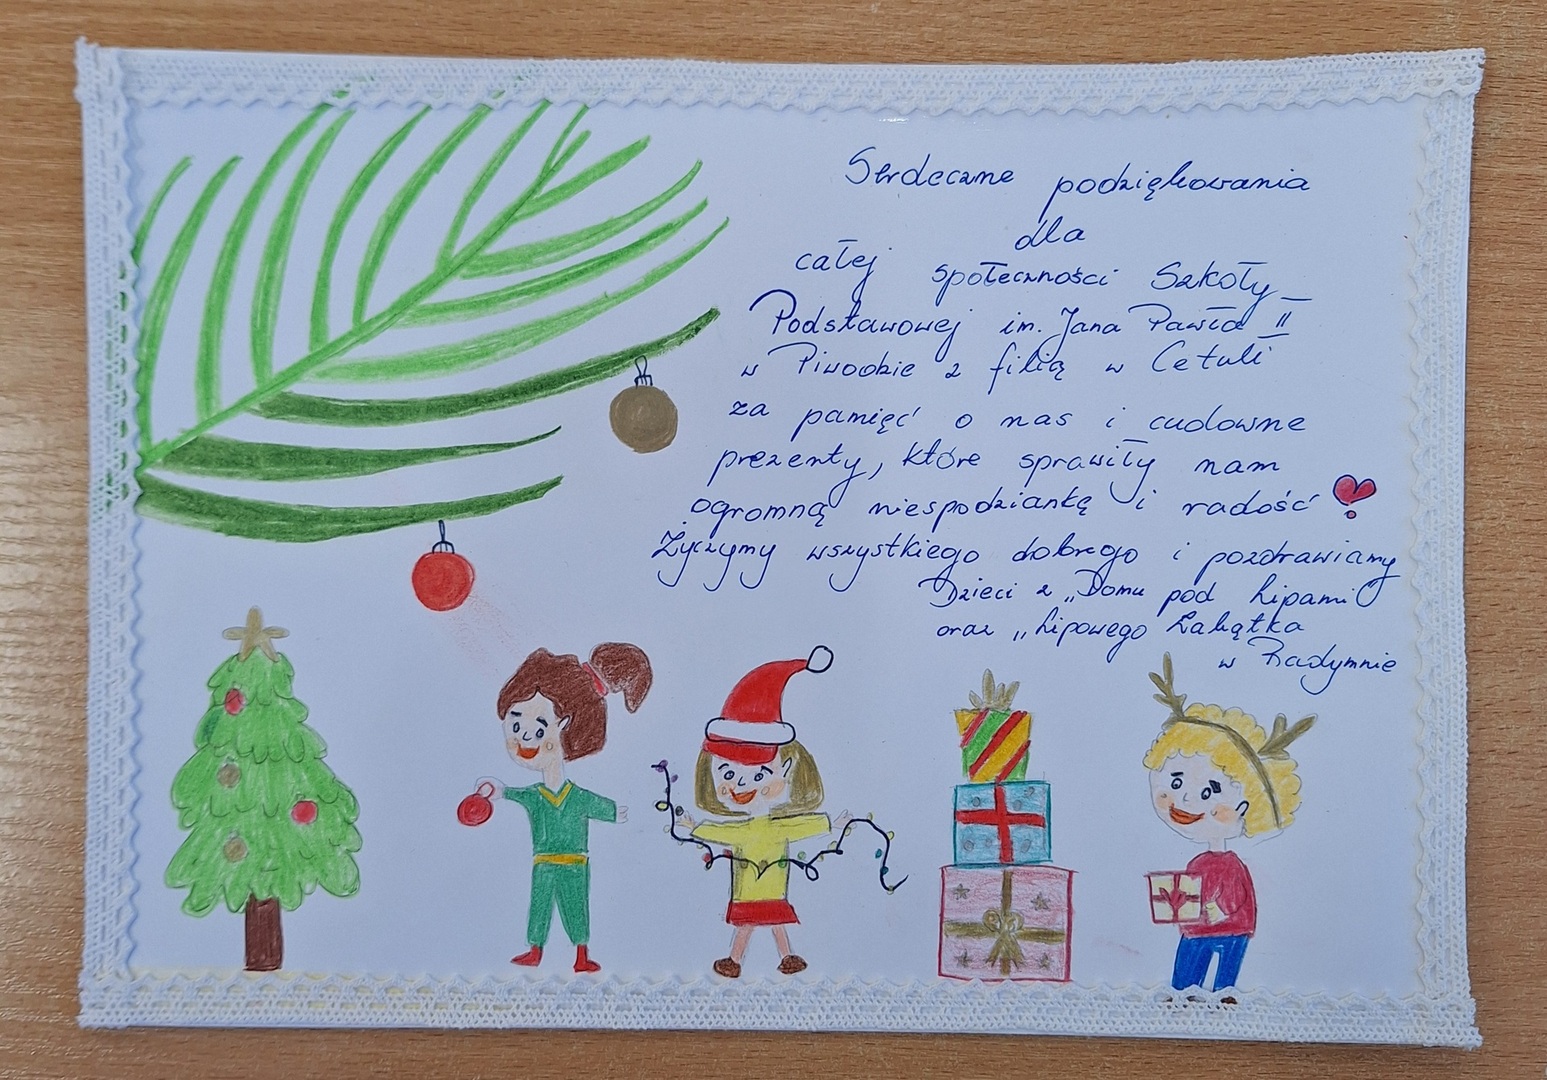 Serdeczne podziękowania
dla
całej społeczności Szkoły
Podstawowej im. Jana Pawła II
w Piwodzie z filią w Cetuli
za pamięć o nas i cudowne
prezenty, które sprawiły nam
ogromną niespodziankę i radość
Życzymy wszystkiego dobrego i pozdrawiamy
Dzieci z „Domu pod Lipami”
oraz „Lipowego Zakątka
w Radymnie